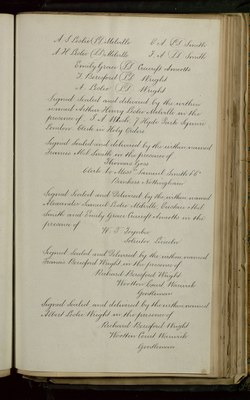 A S Leslie (LS) Melville E A (LS) Smith
A H Leslie (LS) Melville F A (LS) Smith
Emily Grace (LS) Smith
F Beresford (LS) Wright
A Leslie (LS) Wright
Signed Sealed and delivered by the within
named Arthur Henry Leslie Melville in the
presence of Hyde Park Square
London Clerk in Holy Orders
Signed Sealed and delivered by the within named
Smith in the presence of
Thomas
Clerk to Messrs Samuel Smith &Co
Bankers Nottingham
Signed Sealed and Delivered by the within named
Alexander Samuel Leslie Melville, Eustace Abel
Smith and Emily Grace Smith in the
presence of
W. T.
Solicitor London
Signed Sealed and Delivered by the within named
Francis Beresford Wright in the presence of
Richard Beresford Wright
Wootton Court Warwick
Gentleman
Signed Sealed and delivered by the within named
Albert Leslie Wright in the presence of
Richard Beresford Wright
Wootton Court Warwick
Gentleman